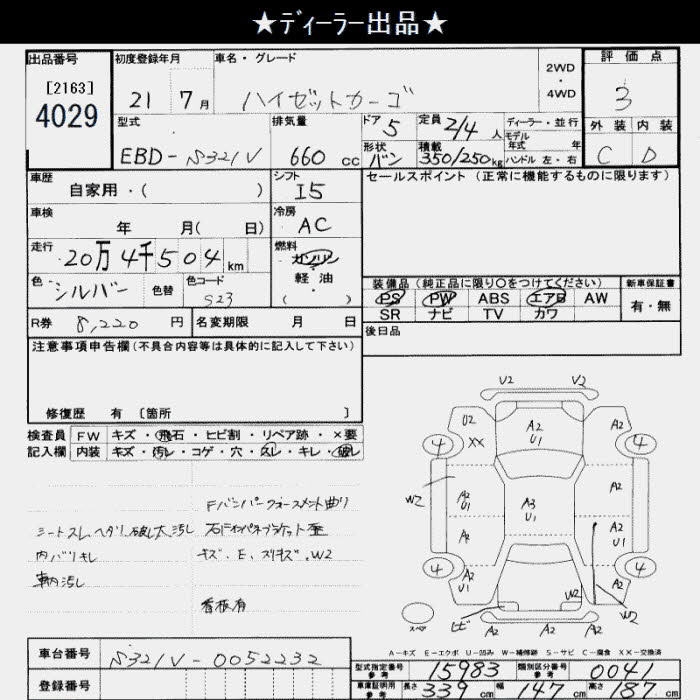 ★ディーラー出品★
出品番号
[2163]
4029
初度登録年月
21 7月
車名・グレード
ハイゼットカーゴ
2WD
・
4WD
評価点
3
外装 内装
C D
型式
EBD-S321V
排気量
660 cc
ドア 5
形状 バン
定員 2/4 人
積載 350/250kg
ディーラー・並行
モデル
年式 年式
ハンドル 左・右
車歴
自家用・( )
シフト
I5
セールスポイント (正常に機能するものに限ります)
車検
年 月( 日)
冷房
AC
走行
20万4千504 km
燃料
ガソリン
・
軽油
・
( )
色
シルバー
色替
色コード
S23
装備品(純正品に限り○をつけてください)
新車保証書
PS PW ABS エアB AW
SR ナビ TV カワ
有・無
R券 8,220 円
名変期限 月 日
後日品
注意事項申告欄(不具合内容等は具体的に記入して下さい)
修復歴 有 [箇所 ]
検査員
記入欄
FW キズ・飛石・ヒビ割・リペア跡・×要
内装 キズ・汚レ・コゲ・穴・スレ・キレ・破レ
Fバンパーフォースメント曲り
シートスレ、ヘタリ、破レ大汚レ
内バリキレ
キズ、E、スリキズ、W2
車内汚レ
看板有
U2 V2
U2 A2 U1
XX
4 4
W2
A2 U1 A3 U1 A2
A2 A2 U1
4 4
A2 U1 A2
W2
ヒビ W2
スペア
A2 A2 A2
A-キズ E-エクボ U-凹み W-補修跡 S-サビ C-腐食 XX-交換済
車台番号
S321V-0052232
登録番号
型式指定番号 参考 15983
類別区分番号 参考 0041
車庫証明用 参考 長さ 339 cm 幅 147 cm 高さ 187 cm